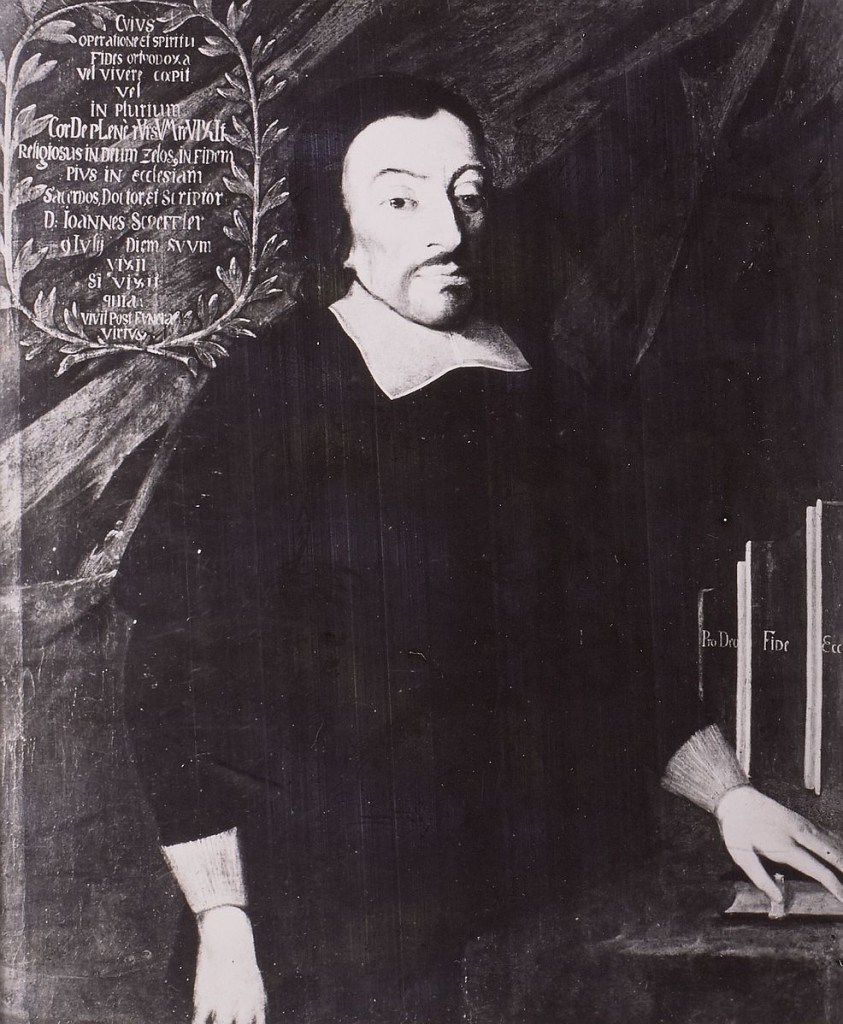 CVIVS
operatione et spiritu
Fides orthodoxa
vel vivere cœpit
vel
in plurium
Religiosus in Deum zelos, in Fidem
PIVS in ecclesiam
Sacerdos, Doctor, et Scriptor
D. IOANNES Scheffler
9 Iulij Diem SVVM
VIXIT
Si VIXIT
quia
vivit Post Funera
virtus
Pro Deo
Fide
Ecc